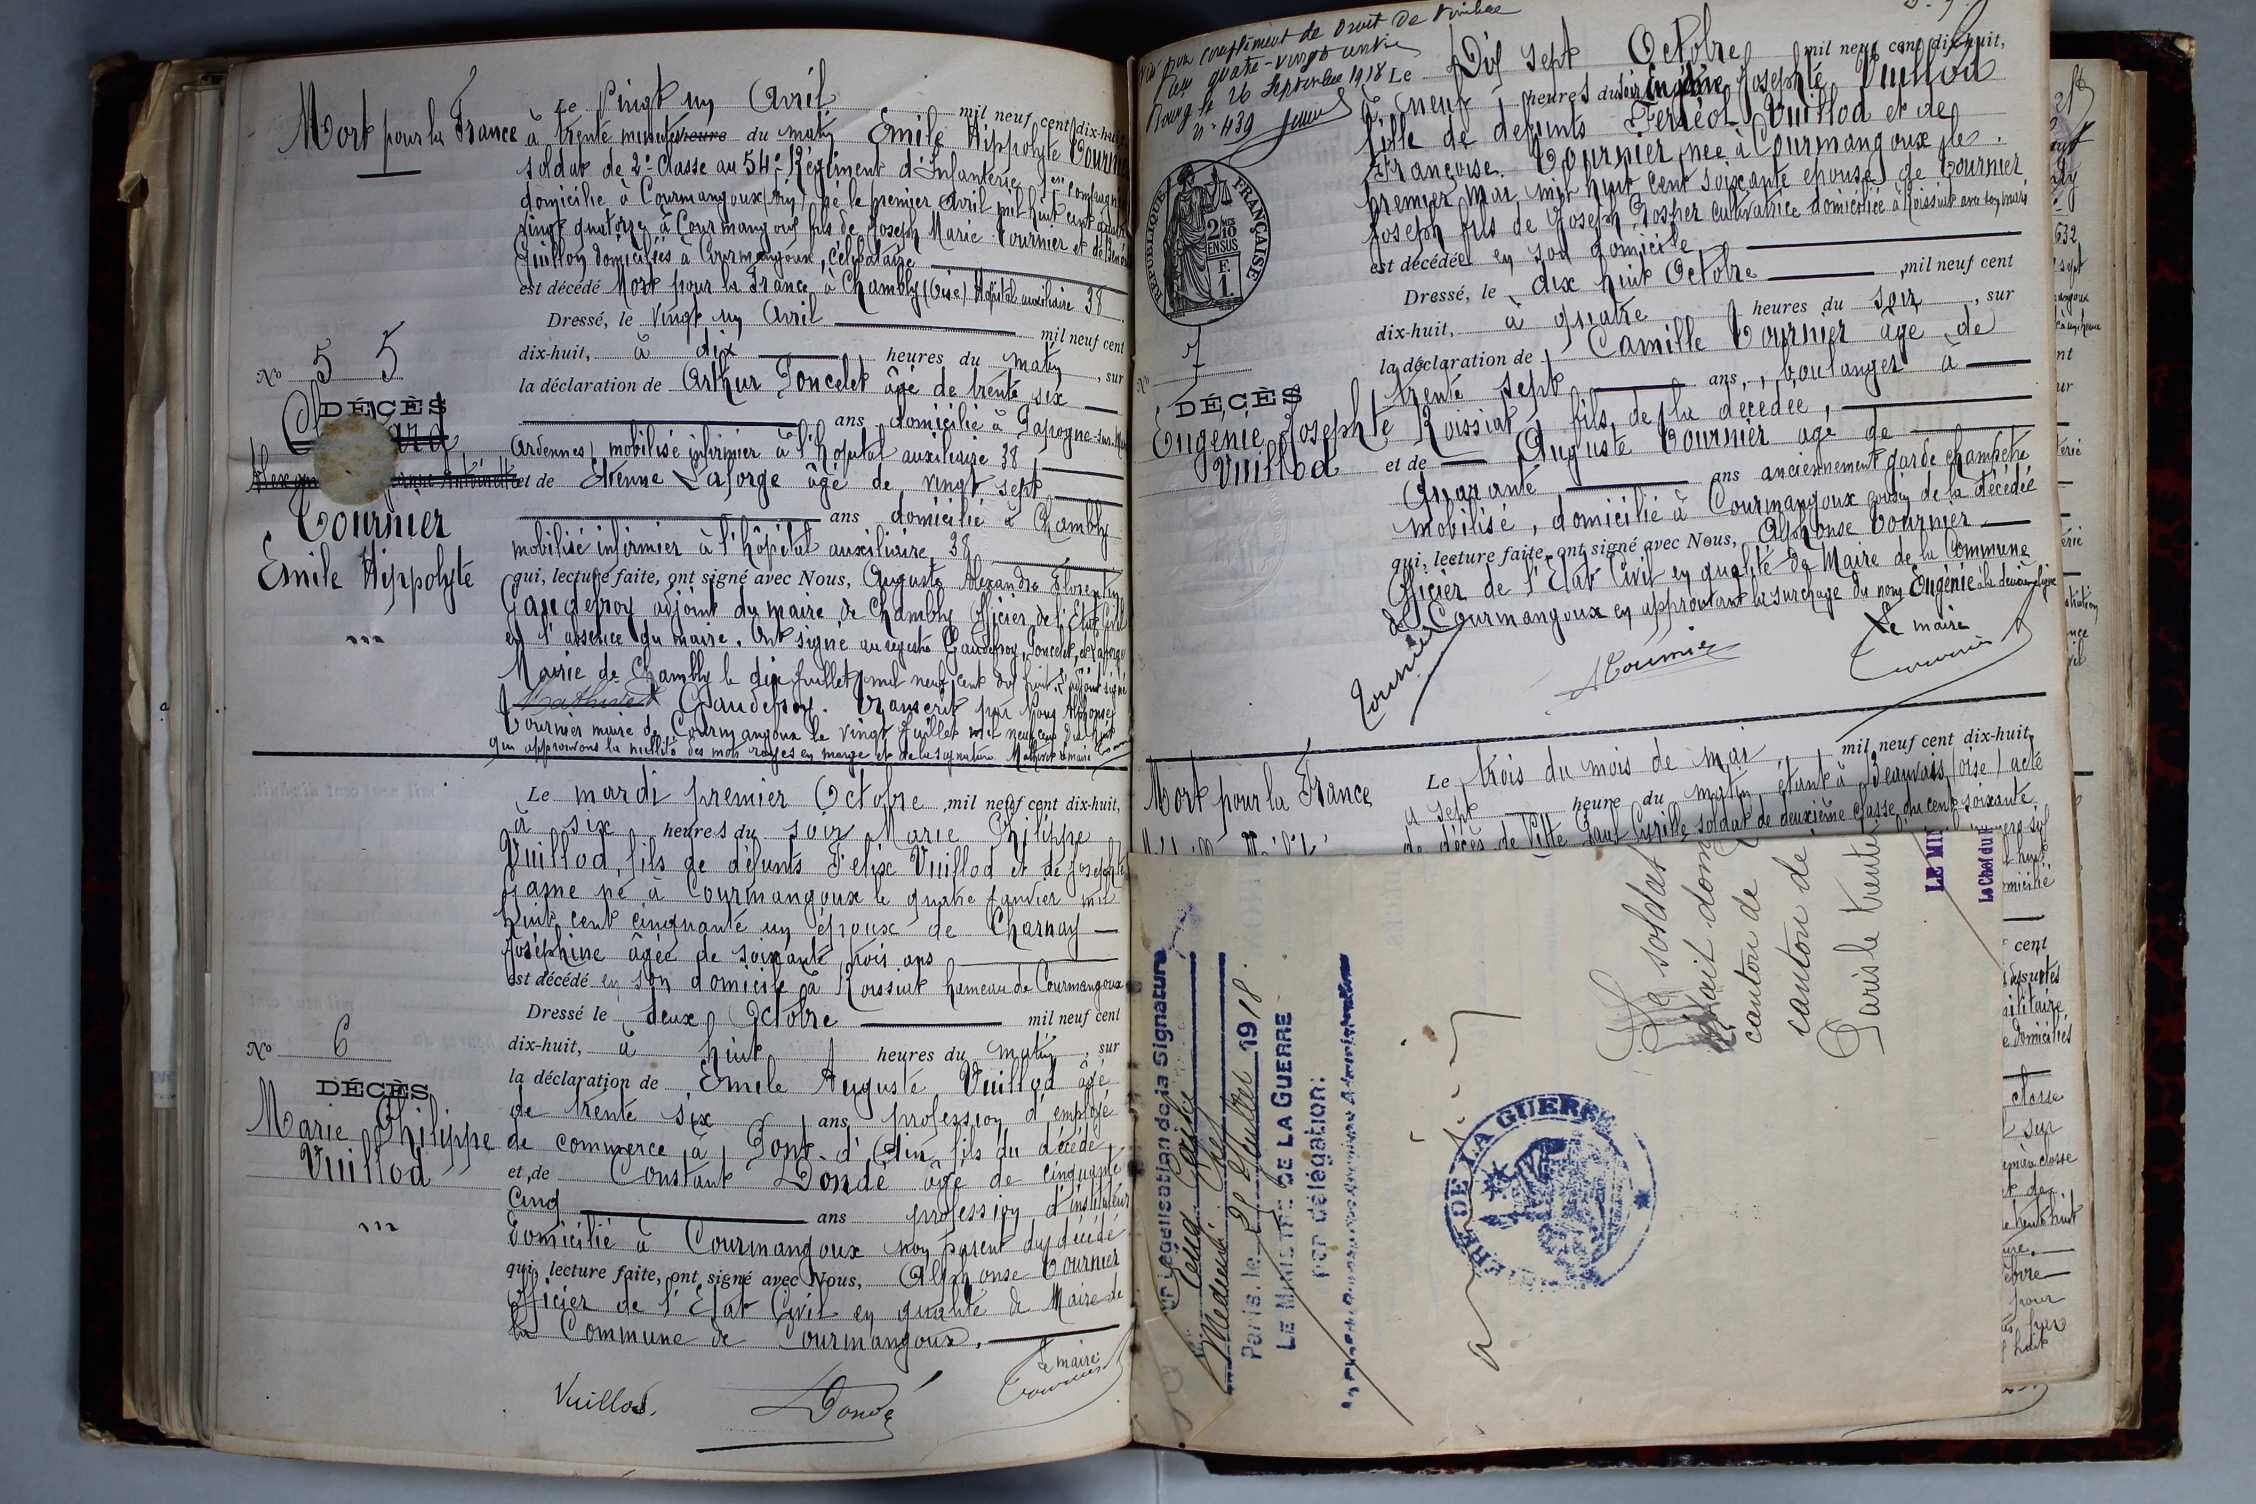 Mort pour la France
Le Vingt un Avril mil neuf cent dix-huit,
à trente minutes heure du matin Emile Hippolyte Tournier
soldat de 2e Classe au 54e Régiment d'Infanterie 1ère compagnie
domicilié à Courmangoux (Ain) né le premier Avril mil huit cent quatre
vingt quatorze à Courmangoux fils de Joseph Marie Tournier et de
Guillon domiciliés à Courmangoux, célibataire
est décédé Mort pour la France à Chambly (Oise) Hôpital auxiliaire 38
Dressé, le vingt un Avril mil neuf cent
dix-huit, à dix heures du matin, sur
la déclaration de Arthur Poncelet âgé de trente six
ans domicilié à
Ardennes) mobilisé infirmier à l'hôpital auxiliaire 38
et de Etienne Laforge âgé de vingt sept
ans domicilié à Chambly
mobilisé infirmier à l'hôpital auxiliaire 38
qui, lecture faite, ont signé avec Nous, Auguste Alexandre Florentin
Gaudefroy adjoint du maire de Chambly Officier de l'Etat Civil
en l'absence du maire. Ont signé au registre Gaudefroy, Poncelet, et Laforge
Mairie de Chambly le dix Juillet mil neuf cent dix huit. L'adjoint signé
Gaudefroy. Transcrit par Nous Alphonse
Tournier maire de Courmangoux le vingt Juillet mil neuf cent dix huit
qui approuvons la nullité des mots rayés en marge et de la signature Mathivet Le maire
No 5 5
DÉCÈS
Tournier
Emile Hippolyte
Le mardi premier Octobre, mil neuf cent dix-huit,
à six heures du soir Marie Philippe
Vuillod, fils de défunts Félix Vuillod et de Josephte
Jame né à Courmangoux le quatre Janvier mil
huit cent cinquante un époux de Charnay
Joséphine âgée de soixante trois ans
est décédé en son domicile à Roissiat hameau de Courmangoux
Dressé le deux Octobre mil neuf cent
dix-huit, à huit heures du matin, sur
la déclaration de Emile Auguste Vuillod âgé
de trente six ans, profession d'employé
de commerce à Pont-d'Ain, fils du décédé
et de Constant Dondé âgé de cinquante
cinq ans profession d'instituteur
domicilié à Courmangoux non parent du décédé
qui, lecture faite, ont signé avec Nous, Alphonse Tournier
Officier de l'Etat Civil en qualité de Maire de
la Commune de Courmangoux.
No 6
DÉCÈS
Marie Philippe
Vuillod
Vuillod.
Dondé
Le maire
Tournier
complément de Droit de timbre
quatre-vingts centimes
Bourg le 26 Septembre 1918
n° 439
RÉPUBLIQUE FRANÇAISE
2/10 EN SUS
F.
1.
Le Dix sept Octobre mil neuf cent dix-huit,
à neuf heures du soir Eugénie Josephte Vuillod
fille de défunts Ferréol Vuillod et de
Françoise Tournier, née à Courmangoux le
premier mai mil huit cent soixante épouse de Tournier
Joseph fils de Joseph Prosper cultivatrice domiciliée à Roissiat avec son mari
est décédée en son domicile
Dressé, le dix huit Octobre, mil neuf cent
dix-huit, à quatre heures du soir, sur
la déclaration de Camille Tournier âgé de
trente sept ans, boulanger à
Roissiat, fils de la décédée,
et de Auguste Tournier âgé de
Quarante ans anciennement garde champêtre
mobilisé, domicilié à Courmangoux cousin de la décédée
qui, lecture faite, ont signé avec Nous, Alphonse Tournier
Officier de l'Etat Civil en qualité de Maire de la Commune
de Courmangoux en approuvant la surcharge du nom Eugénie à la deuxième ligne
No 7
DÉCÈS
Eugénie Josephte
Vuillod
Tournier
ATournier
Le maire
Tournier
Mort pour la France
Le trois du mois de mai, mil neuf cent dix-huit,
à sept heure du matin, étant à Beauvais (oise) acte
de décès de Pitte Paul Cyrille soldat de deuxième classe du cent soixante
Légalisation de la Signature
Médecin Chef
Paris, le 22 Juillet 1918.
LE MINISTRE DE LA GUERRE
par délégation:
Le soldat
était dom
canton de
canton de
Paris le trente
LE MIN
Le Chef du
DE LA GUERRE